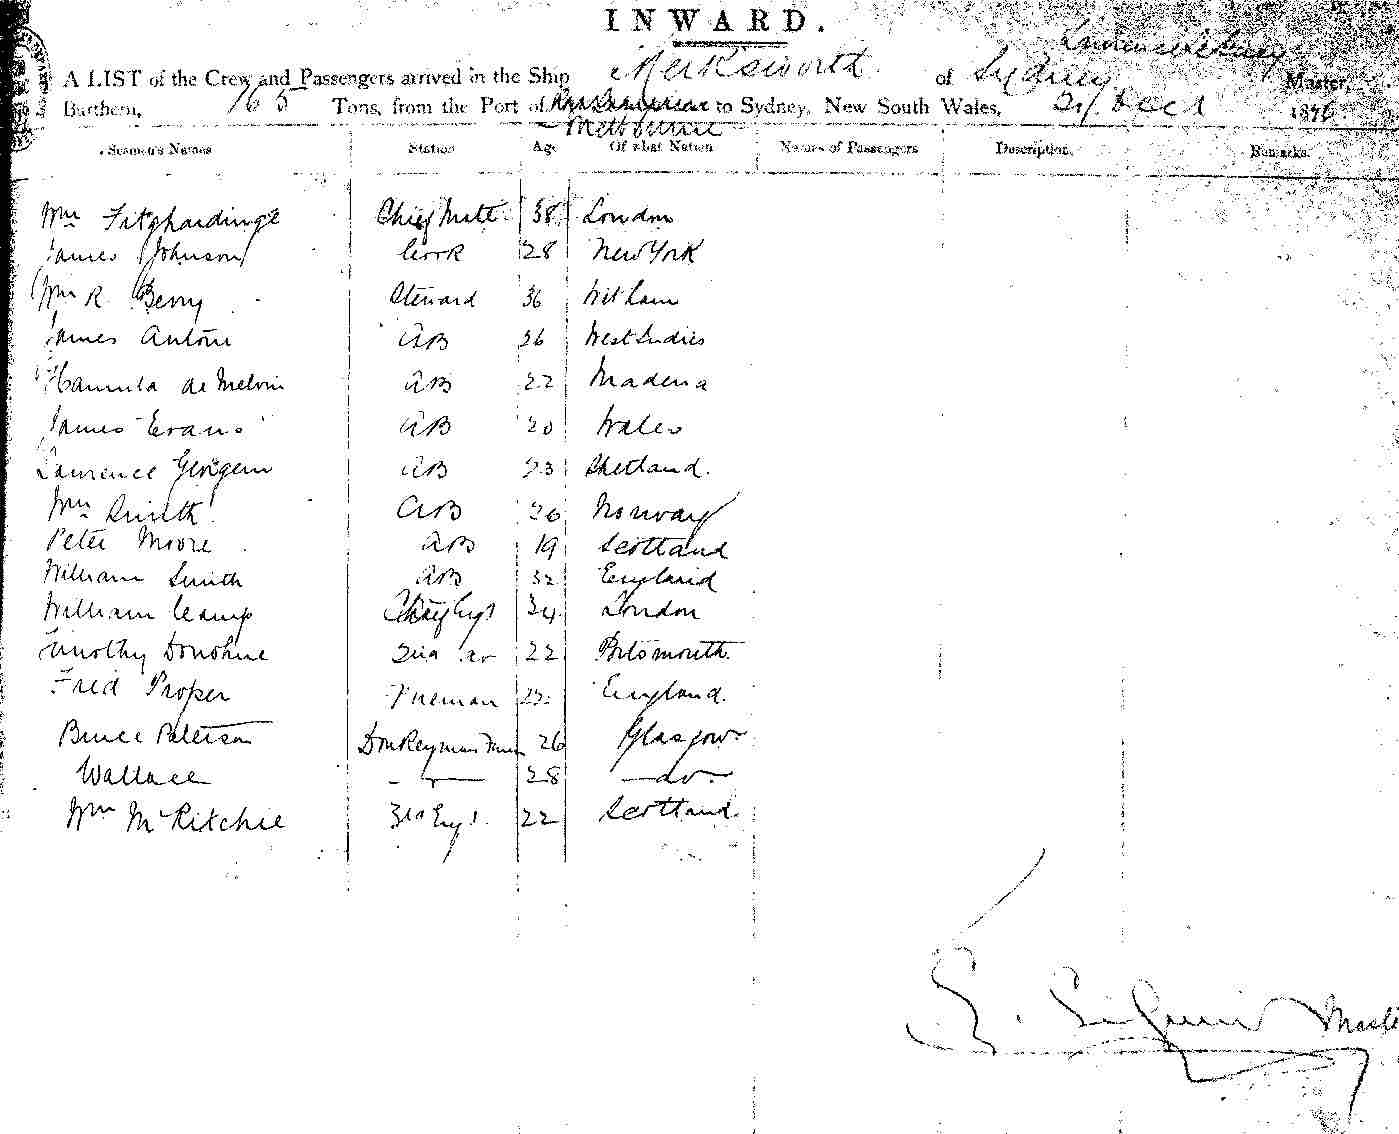 INWARD.
A LIST of the Crew and Passengers arrived in the Ship Merksworth of Sydney Master,
Burthen, 765 Tons, from the Port of to Sydney, New South Wales, 21 Dec 1876
Melbourne
Seamen's Names Station Age Of what Nation Names of Passengers Description. Remarks.
Wm Fitzhardinge Chief Mate 38 London
James Johnson Cook 28 New York
Wm R. Berry Steward 36 Witham
James Antoni AB 26 West Indies
de Melvin AB 22 Madeira
James Evans AB 20 Wales
Lawrence AB 23 Shetland.
Wm Smith AB 26 Norway
Peter Moore AB 19 Scotland
William Smith AB 32 England
William Camp Chief Engr 34 London
Timothy Donohue 2nd do 22 Portsmouth
Fred Proper Fireman 22 England.
Bruce Paterson Donkeyman 26 Glasgow
Wallace 28 — do —
Wm McRitchie 3rd Engr. 22 Scotland.
Master